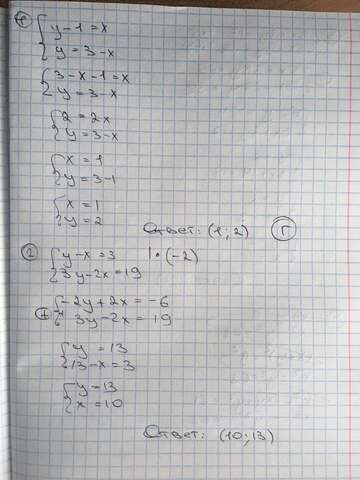 ① { y - 1 = x
{ y = 3 - x
{ 3 - x - 1 = x
{ y = 3 - x
{ 2 = 2x
{ y = 3 - x
{ x = 1
{ y = 3 - 1
{ x = 1
{ y = 2
Ответ: (1; 2) Г
② { y - x = 3 | · (-2)
{ 3y - 2x = 19
+ { -2y + 2x = -6
{ 3y - 2x = 19
{ y = 13
{ 13 - x = 3
{ y = 13
{ x = 10
Ответ: (10; 13)